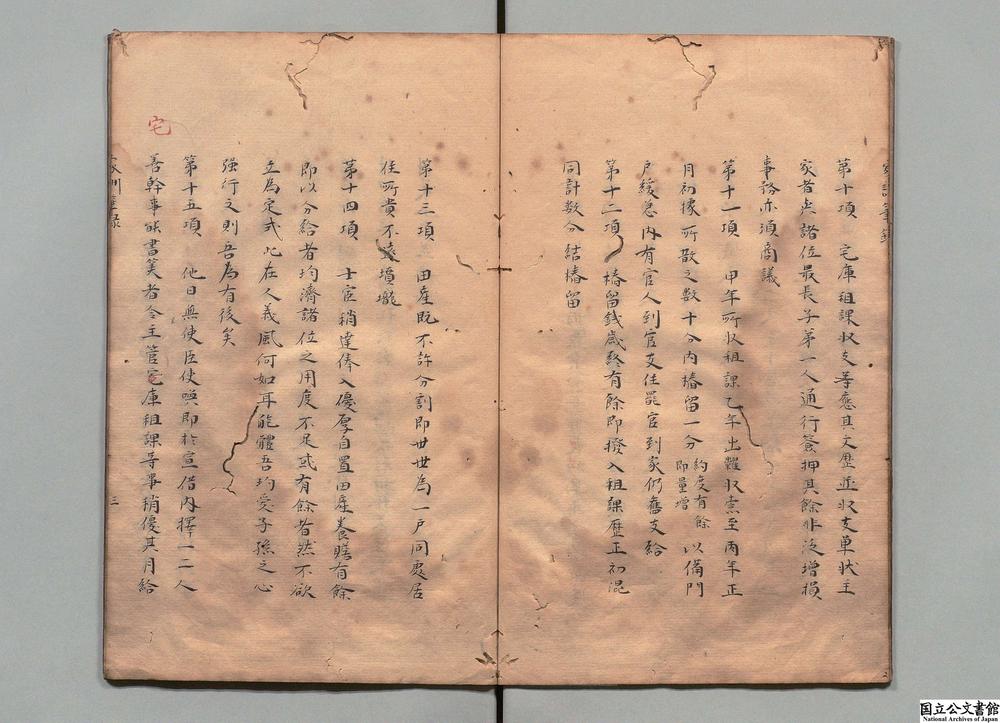 第十項　宅庫租課収支等應其文歴並収支單状主
家者与諸位最長子第一人通行簽押其餘非泛增損
事務亦須商議
第十一項　甲年所収租課乙年出糶収索至丙年正
月初據所散之数十分内樁留一分約度有餘即量增以備門
戶緩急内有官人到官支住罷官到家仍舊支給
第十二項　樁留錢歳終有餘即撥入租課歴正初混
同計数分結樁留
第十三項　田産既不許分割即世世為一戶同處居
住所貴不遠墳壠
第十四項　士宦稍達俸入優厚自置田産養贍有餘
即以分給者均濟諸位之用度不足或有餘者然不欲
立為定式此在人義風何如耳能體吾均愛子孫之心
強行之則吾為有後矣
第十五項　他日無使臣使喚即於宣借内擇一二人
善幹事能書筭者令主管宅庫租課等事稍優其月給
宅
三
国立公文書館
National Archives of Japan